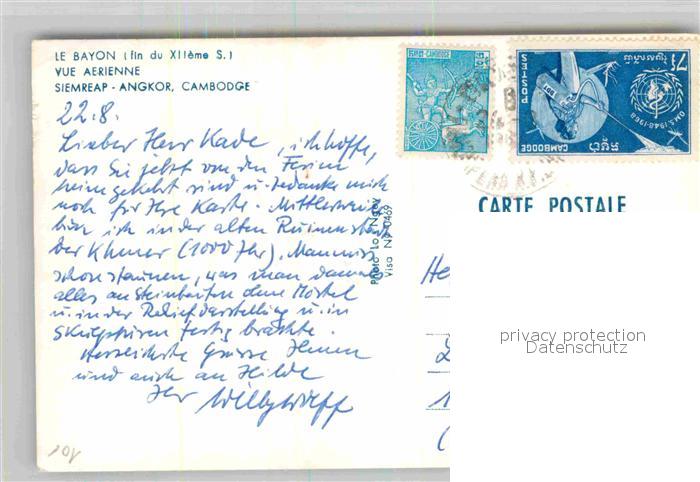 LE BAYON (fin du XIIème S.)
VUE AERIENNE
SIEMREAP - ANGKOR, CAMBODGE
22.8.
Lieber Herr Kade, ich hoffe,
dass Sie jetzt von den Ferien
heimgekehrt sind u. bedanke mich
noch für Ihre Karte. Mittlerweile
bin ich in der alten Ruinenstadt
der Khmer (1000 Jhr). Man muss
schon staunen, was man damals
alles an Steinbauten ohne Mörtel
u. in der Reliefdarstellung u. in
Skulpturen fertig brachte.
Herzlichste Grüsse Ihnen
und auch an Hilde
Ihr Willy
Photo Lo-Ngoy
Visa No 0469
CARTE POSTALE
POSTES
CAMBODGE
75
O.M.S. 1948-1968
POSTES-CAMBODGE
He
privacy protection
Datenschutz
101